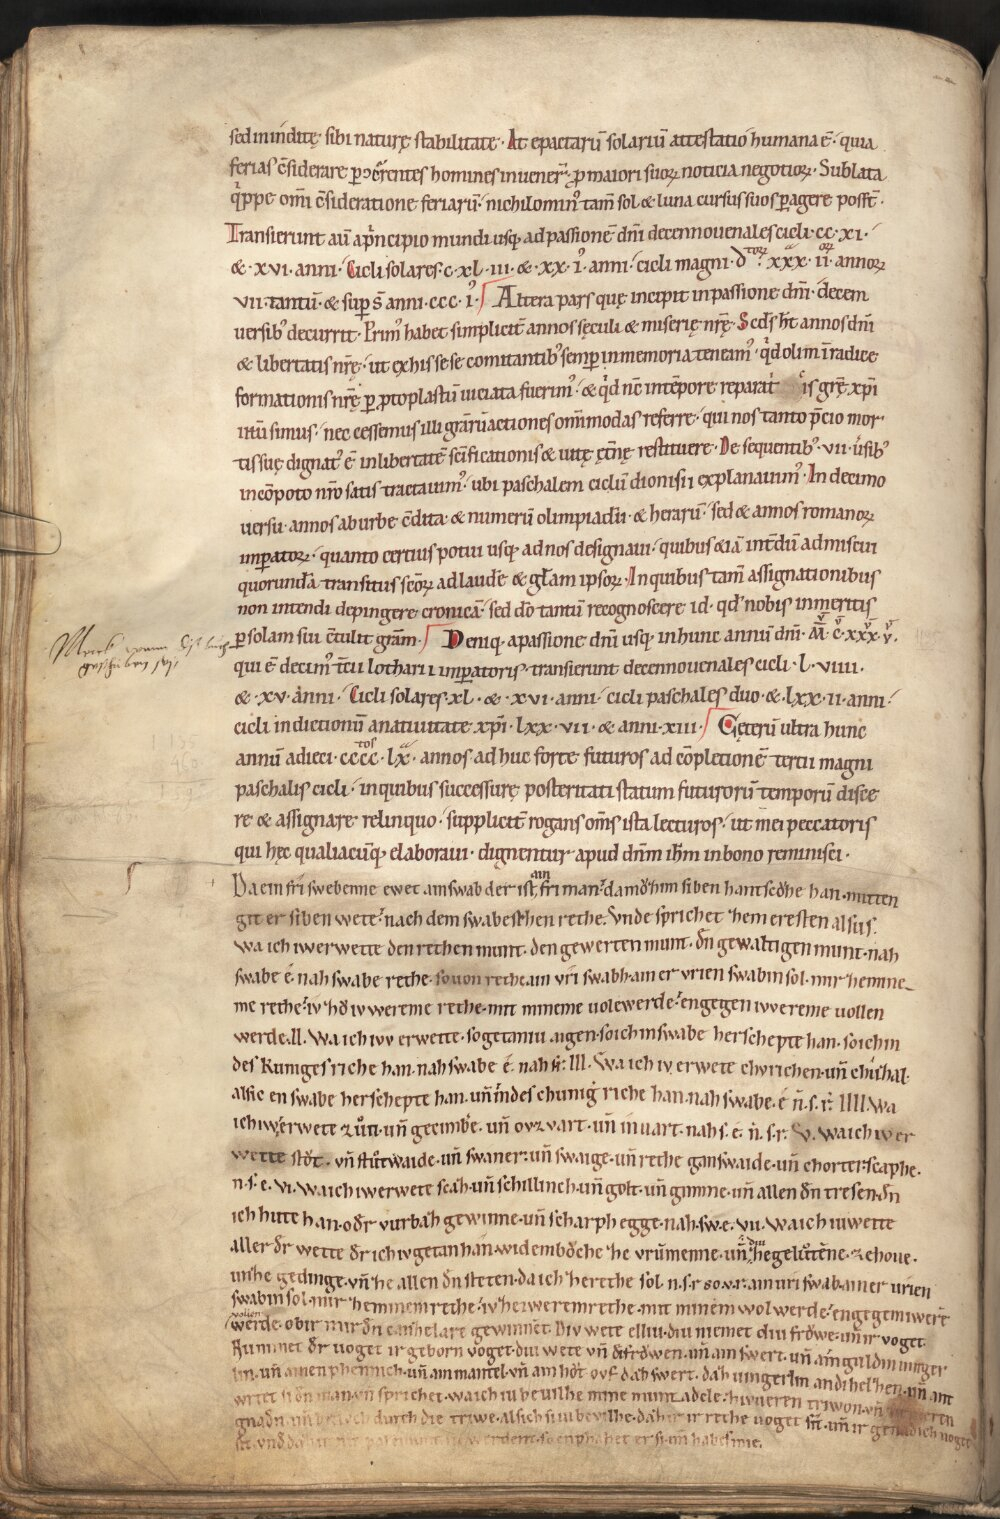 sed in inditę sibi naturę stabilitate · At epactarū solariū attestatio humana ē · quia
ferias c̄siderare ꝑ ɔ̄ferentes homines invener̄ · ꝓ maiori suoꝝ noticia negotioꝝ · Sublata
qͥppe om̄i c̄sideratione feriarū · nichilominꝰ tam̄ sol & luna cursus suos ꝑagere poss̄t ·
Transierunt aū a pͥncipio mundi usq; ad passionē dn̄i decennovenales cicli · cc · xi ·
& · xvi · anni · Cicli solares c · xl · iii · & · xx · i · anni · cicli magni · d · xxx · ii · annoꝝ
vii · tantū · & suꝑ s̄ anni · ccc · i · Altera pars quę incipit in passione dn̄i · decem
versibꝰ decurrit · Primꝰ habet simplicit̄ annos sęculi & miserię nr̄ę · Scd̄s h̄t annos dn̄i
& libertatis nr̄ę · ut ex his sese comitantibꝰ semꝑ in memoria teneamꝰ · qͥd olim ī radice
formationis nr̄ę ꝑ ꝓtoplastū viciata fuerimꝰ · & qͥd nc̄ in tēpore reparati is gr̄ę xp̄i
itū simus · nec cessemus illi grārū actiones om̄imodas referre · qui nos tanto p̄cio mor
tis suę dignatꝰ ē in libertatē sc̄ificationis & vitę ęt̄nę restituere · De sequentibꝰ · vii · v̄sibꝰ
in cōpoto nr̄o satis tractavimꝰ · ubi paschalem ciclū dionisii explanavimꝰ · In decimo
versu · annos ab urbe c̄dita · & numerū olimpiadū · & herarū · sed & annos romanoꝝ
imꝑatoꝝ · quanto certius potui usq; ad nos designavi · quibus & iā int̄dū admiscui
quorundā transitus sc̄oꝝ ad laudē & gl̄am ipsoꝝ · In quibus tam̄ assignationibus
non intendi depingere cronicā · sed do tantū recognoscere id · qd̄ nobis inmeritis
ꝑ solam sui c̄tulit grām · Deniq; a passione dn̄i usq; in hunc annū dn̄i · M̄ · c · xxx · v ·
qui ē decimꝰ t̄cii lotharii imꝑatoris · transierunt decennovenales cicli · l · viiii ·
& · xv · anni · Cicli solares · xl · & · xvi · anni · cicli paschales duo · & · lxx · ii · anni ·
cicli indictionū a nativitate xp̄i · lxx · vii · & anni · xiii · Cęterū ultra hunc
annū adieci · cccc · lx · annos adhuc forte futuros ad cōpletionē tertii magni
paschalis cicli · in quibus successurę posteritati statum futurorū temporū disce
re & assignare relinquo · suppliciт̄ rogans om̄s ista lecturos · ut mei peccatoris
qui hęc qualiacūq; elaboravi · dignentur apud dn̄m ih̄m in bono reminisci ·
Da ein fri swebenne ewet ain swab der ist ain fri man · da mͦzim siben hantscͦhe han · mitten
git er siben wete · nach dem swabeschen rethe · Unde sprichet zem eresten alsus ·
wa ich iw erwette den rethen munt · den gewerten munt · dn̄ gewaltigen munt · nah
swabe ē · nah swabe rethe · so von rethe · ain vri swab · ainer vrien swabin sol · mir ze mine
me rethe · iv zͦ iwereme rethe · mit mineme volewerde · engegen ivvereme vollen
werde · II · Wa ich ivv erwette · sogetaniu · aigen · so ich in swabe herschepte han · so ich in
des kuniges riche han · nah swabe ē · nah r̄ · III · Wa ich iv erwete chvrichen · un̄ chvͥshal
alsie en swabe herschepte han · un̄ in des chunigͥ riche han · nah swabe · ē n̄ · s · r̄ · IIII · Wa
ich iw erwette zvͦn · un̄ gecimbͤre · un̄ ovzvart · un̄ invart · nah s · e · n̄ · s · r · V · wa ich iw er
wette stͦt · vn̄ stvͦtwaide · un̄ swaner · un̄ swaige · un̄ rethe ganswaide · un̄ chorter scaphe ·
n · s · e · vi · Wa ich iw erwete scaz · un̄ schillinch · un̄ golt · un̄ gimme · un̄ allen dn̄ tresen · dn̄
ich hute han · odr vurbaz gewinne · un̄ scharph egge · nah · sw · e · vii · Wa ich iu wette
aller dr wette dr ich iv getan han · widembͦche ze vrumenne · un̄ diu ze gelutenne · zehove ·
un̄ ze gedinge · vn̄ ze allen dn̄ steten · da ich ze rethe sol · n · s · r so · v · r · ain vri swab · ainer vrien
swabin sol · mir ze minem rethe · iv ze iwerem rethe · mit minem wol werde · engegem iwerm
vollen
werde · ob ir mir dn̄ canzelare gewinnet · Div wete elliu · diu niemet diu frͦwe · un̄ ir voget
Nu nimet dr voget ir geborn voget · diu wete un̄ die frͦwen · un̄ ain swert · un̄ ain guldin vinger
lin · un̄ ainen phennich · un̄ ain mantel · vn̄ ain hͦt ovf daz swert · daz vingerlin an di helzen · un̄ ant
wrtet si dn̄ man · vn̄ sprichet · wa ich iu bevilhe mine munt adele · ziweren triwon · un̄ ziweren
gnadn · un̄ bit iuch durch die triwe · als ich si iu bevilhe · daz ir ir rethe voget sīt · un̄ ir genadich voget